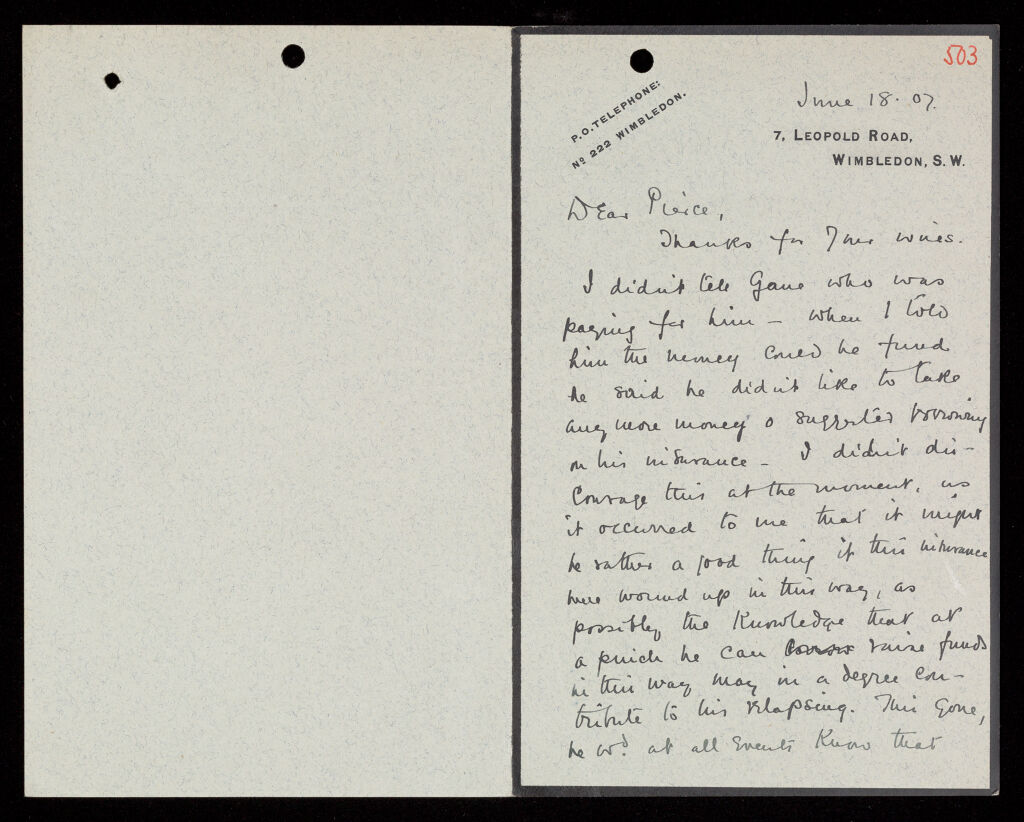 503
P.O. TELEPHONE:
Nº 222 WIMBLEDON.
June 18. 07.
7, LEOPOLD ROAD,
WIMBLEDON, S.W.
Dear Pierce,
Thanks for your wires.
I didn't tell Gane who was
paying for him – when I told
him the money could be found
he said he didn't like to take
any more money & suggested borrowing
on his insurance – I didn't dis-
courage this at the moment, as
it occurred to me that it might
be rather a good thing if this insurance
were wound up in this way, as
possibly the knowledge that at
a pinch he can raise funds
in this way may in a degree con-
tribute to his relapsing. This gone,
he wd. at all events know that